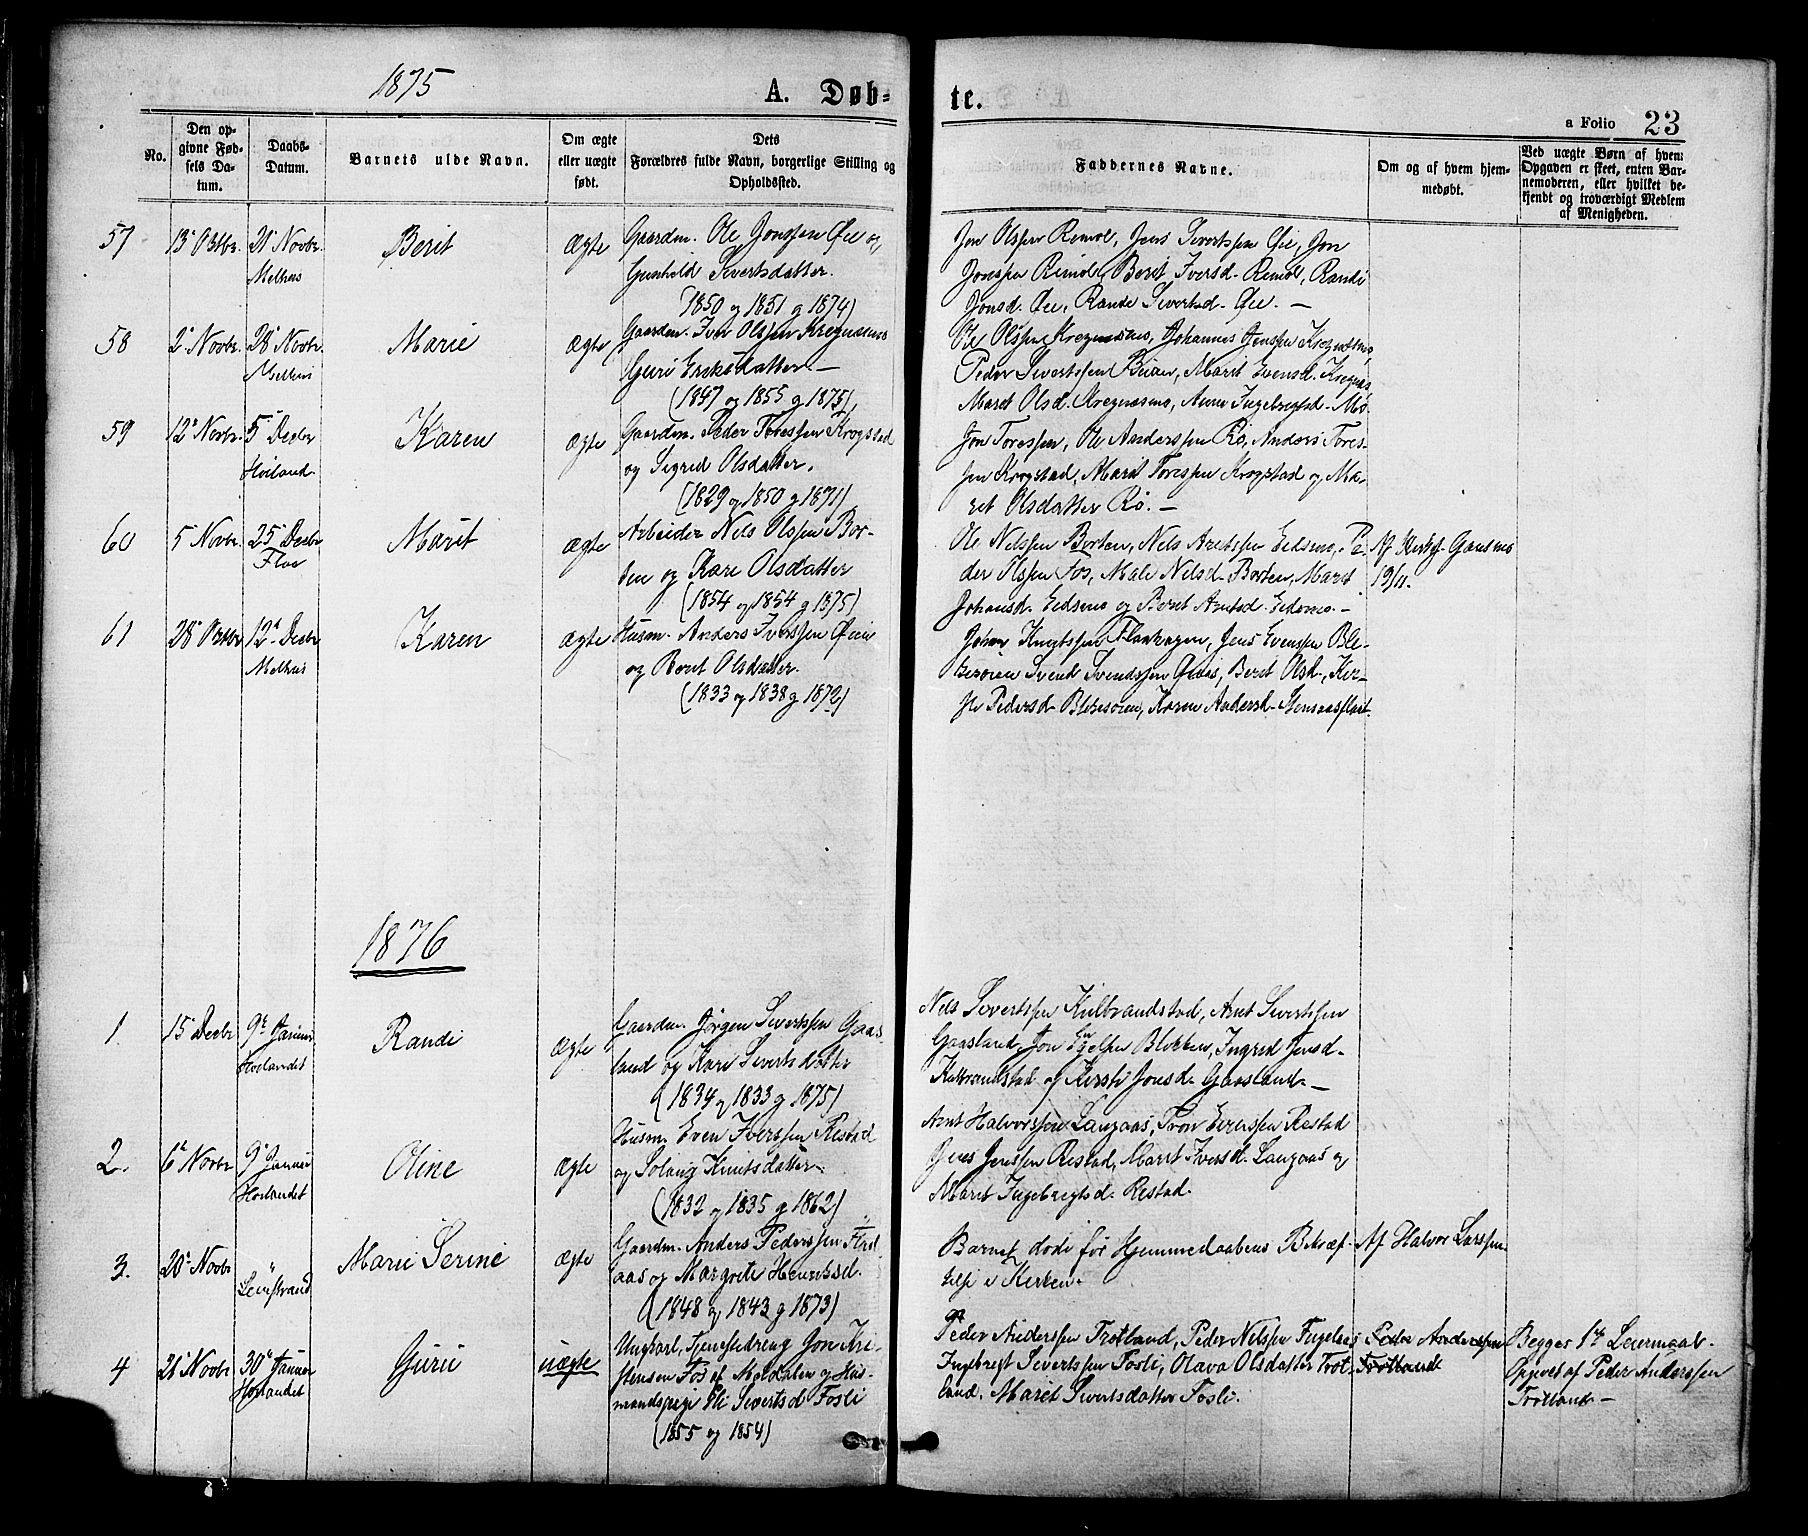 1875
A. Døb-
te.
a Folio 23
No.
Den op-
givne Fød-
sels Da-
tum.
Daabs-
Datum.
Barnets ulde Navn.
Om ægte
eller uægte
født.
Dets
Forældres fulde Navn, borgerlige Stilling og
Opholdssted.
Faddernes Navne.
Om og af hvem hjem-
medøbt.
Ved uægte Børn af hvem
Opgaven er skeet, enten Bar-
nemoderen, eller hvilket be-
kjendt og troværdigt Medlem
af Menigheden.
57
13 Oktbr.
21 Novbr.
Melhus
Berit
ægte
Gaardm. Ole Jonssen Øie og
Gunhild Sivertsdatter.
(1850 og 1851 g 1874)
Jon Olssen Remol, Jens Sivertssen Øie, Jon
Jonssen Remol, Berit Iversd. Remol, Randi
Jonsd. Øie, Rande Sivertsd. Øie. —
58
2 Novbr.
28 Novbr.
Melhus
Marie
ægte
Gaardm. Iver Olssen Kregnæsmo
Guri Eriksdatter. —
(1847 og 1855 g 1875),
Ole Olssen Kregnæsmo, Johannes Jenssen Kregnæsmo,
Peder Sivertssen, Marit Evensd. Kregnæs
Maret Olsd. Kregnæsmo, Anne Ingebrigtsd. Mo.
59
12 Novbr.
5 Decbr
Høiland
Karen
ægte
Gaardm. Peder Toressen Krogstad
og Sigrid Olsdatter.
(1829 og 1850 g 1871)
Jon Toressen, Ole Anderssen Rø, Anders Tores-
sen Krogstad, Marit Toressen Krogstad og Ma-
ret Olsdatter Rø. —
60
5 Novbr.
25 Decbr
Flaa
Marit
ægte
Arbeider Nels Olssen Bor-
ten og Kare Olsdatter
(1854 og 1854 g 1875)
Ole Nelssen Borten, Nels Arntssen Eidsmo, Pe-
der Olssen Fos, Male Nelsd. Borten, Maret
Johansd. Eidsmo og Beret Arntsd. Eidsmo. —
Af Kirkes. Gausmo
19/11.
61
28 Oktbr
12 Decbr
Melhus
Karen
ægte
Husm. Anders Iverssen Øien
og Beret Olsdatter.
(1833 og 1838 g 1872)
Johan Knutssen Flaahagen, Jens Evenssen Ble-
kesøien Svend Svendssen, Beret Olsd., Ker-
ste Pedersd. Blekesøien, Karen Andersd.
1876
1.
15 Decbr
9 Januar
Høilandet
Randi
ægte
Gaardm. Jørgen Sivertssen Gaas-
land og Kari Sivertsdatter
(1834 og 1833 g 1875)
Nels Sivertssen Kulbrandstad, Arnt Sivertssen
Gaasland, Jon Blekken, Ingrid Jensd.
Kulbrandstad og Kersti Jonsd. Gaasland. —
2.
6 Novbr
9 Januar
Høilandet
Oline
ægte
Husm. Even Iverssen Restad
og Solaug Knutsdatter.
(1832 og 1835 g 1862)
Arnt Halvorssen Langaas, Tron Evenssen Restad
Jens Jenssen Restad, Marit Iversd. Langaas og
Marit Ingebregtsd. Restad.
3.
20 Novbr
"
Leinstrand
Marie Serine
ægte
Gaardm. Anders Pederssen
aas og Margrete Henriksd.
(1848 og 1843 g 1873)
Barnet døde før Hjemmedaabens Bekræf-
telse i Kirken.
Af Halvor Larssen
4
21 Novbr
30 Januar
Høilandet
Guru
uægte
Ungkarl, Tjenestedreng Jon Kri-
stensen Fos af Meldalen og Hus-
mandspige Eli Sivertsd Fosli
(1855 og 1854)
Peder Anderssen Trøtland, Peder Nelssen Fuglaas
Ingebregt Sivertssen Fosli, Olava Olsdatter Trøt-
land. Maret Sivertsdatter Fosli.
Peder Anderssen
Trøtland
Begges 1ste Leiermaal.
Opgivet af Peder Anderssen
Trøtland —